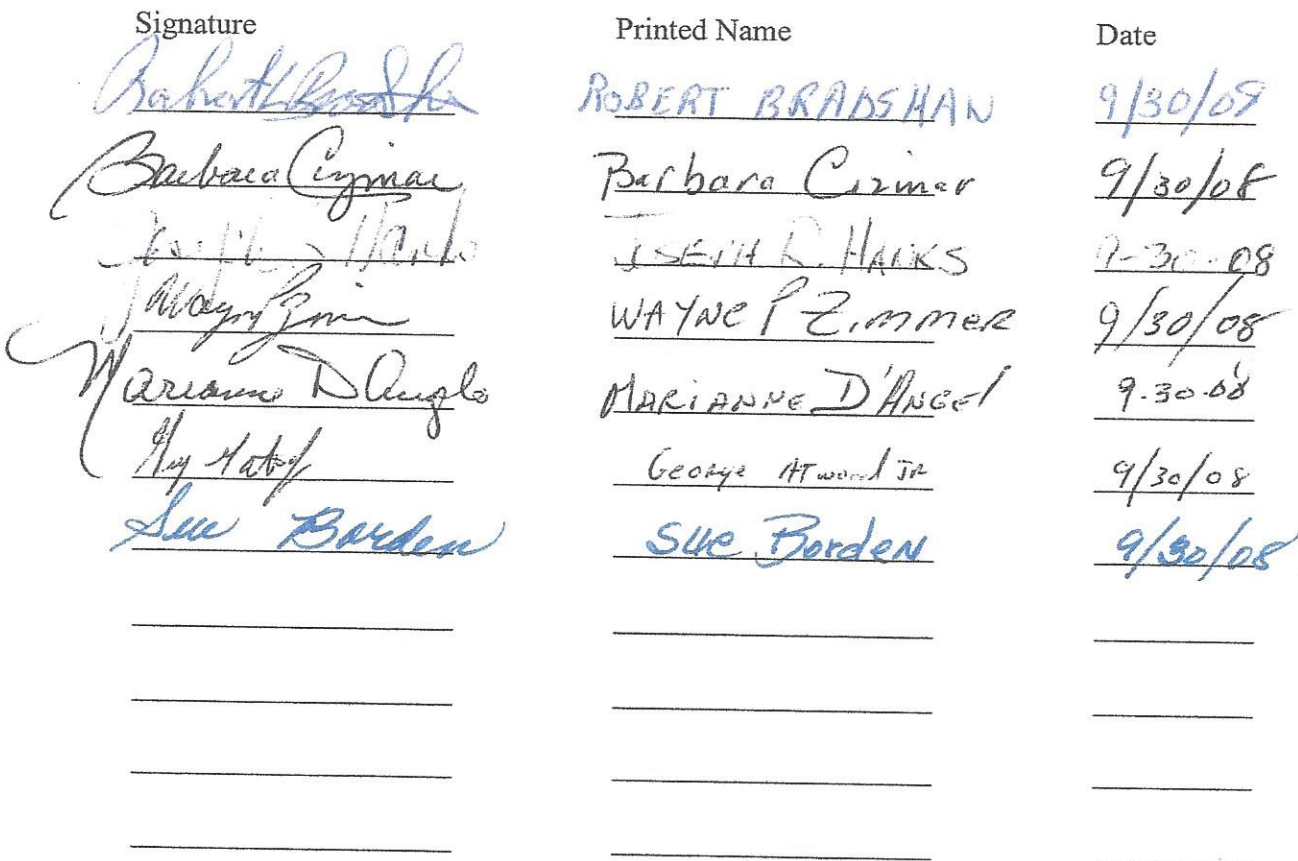 Signature Printed Name Date
ROBERT BRADSHAW 9/30/08
Barbara Cizmar Barbara Cizmar 9/30/08
JOSEPH R. HANKS 9-30-08
WAYNE P ZimmeR 9/30/08
Marianne D'Angelo MARIANNE D'ANGEl 9.30.08
GeORge ATwood JR 9/30/08
Sue Borden Sue Borden 9/30/08